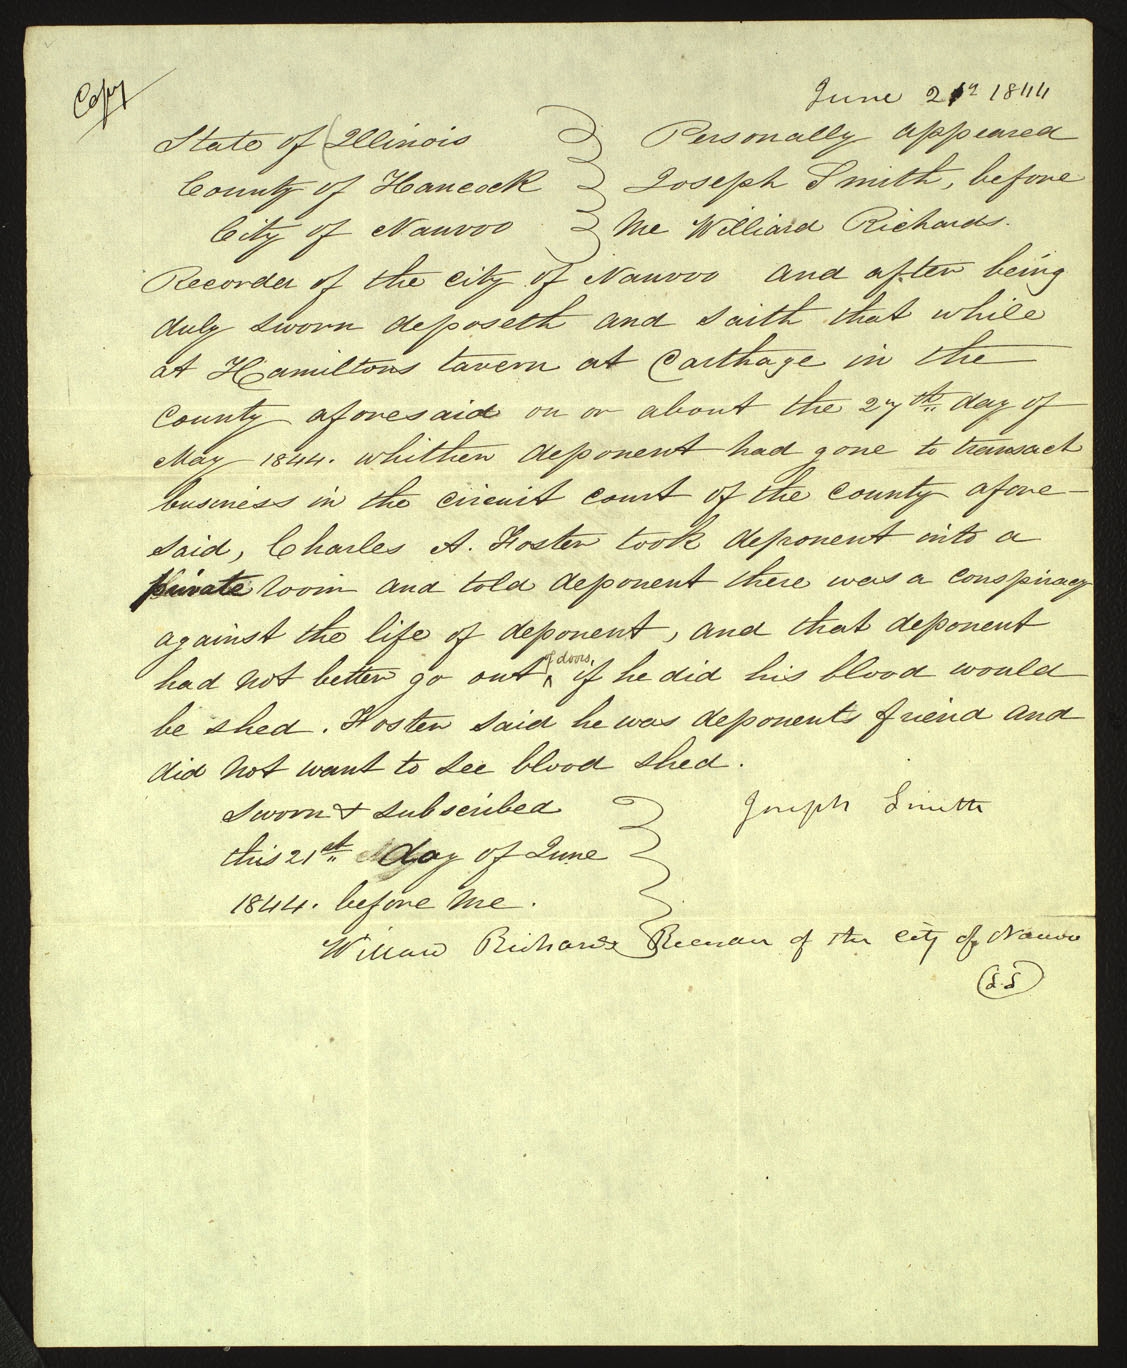 Copy
June 21st 1844
State of Illinois } Personally appeared
County of Hancock } Joseph Smith, before
City of Nauvoo } Me Williard Richards.
Recorder of the city of Nauvoo and after being
duly sworn deposeth and saith that while
at Hamiltons tavern at Carthage in the
County aforesaid on or about the 27th day of
May 1844. whither deponent had gone to transact
business in the circuit court of the county afore-
said, Charles A. Foster took deponent into a
private room and told deponent there was a conspiracy
against the life of deponent, and that deponent
had not better go out of doors, if he did his blood would
be shed. Foster said he was deponents friend and
did not want to see blood shed.
Sworn & subscribed } Joseph Smith
this 21st day of June
1844. before me.
Willard Richards Recorder of the city of Nauvoo